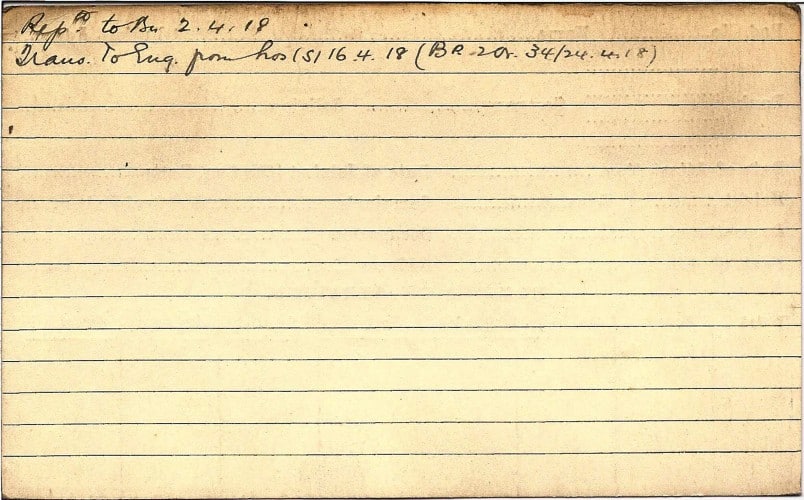 Rep^td to Bn 2.4.18
Trans. To Eng. from hos (S) 16.4.18 (BR 2 Or. 34/24.4.18)